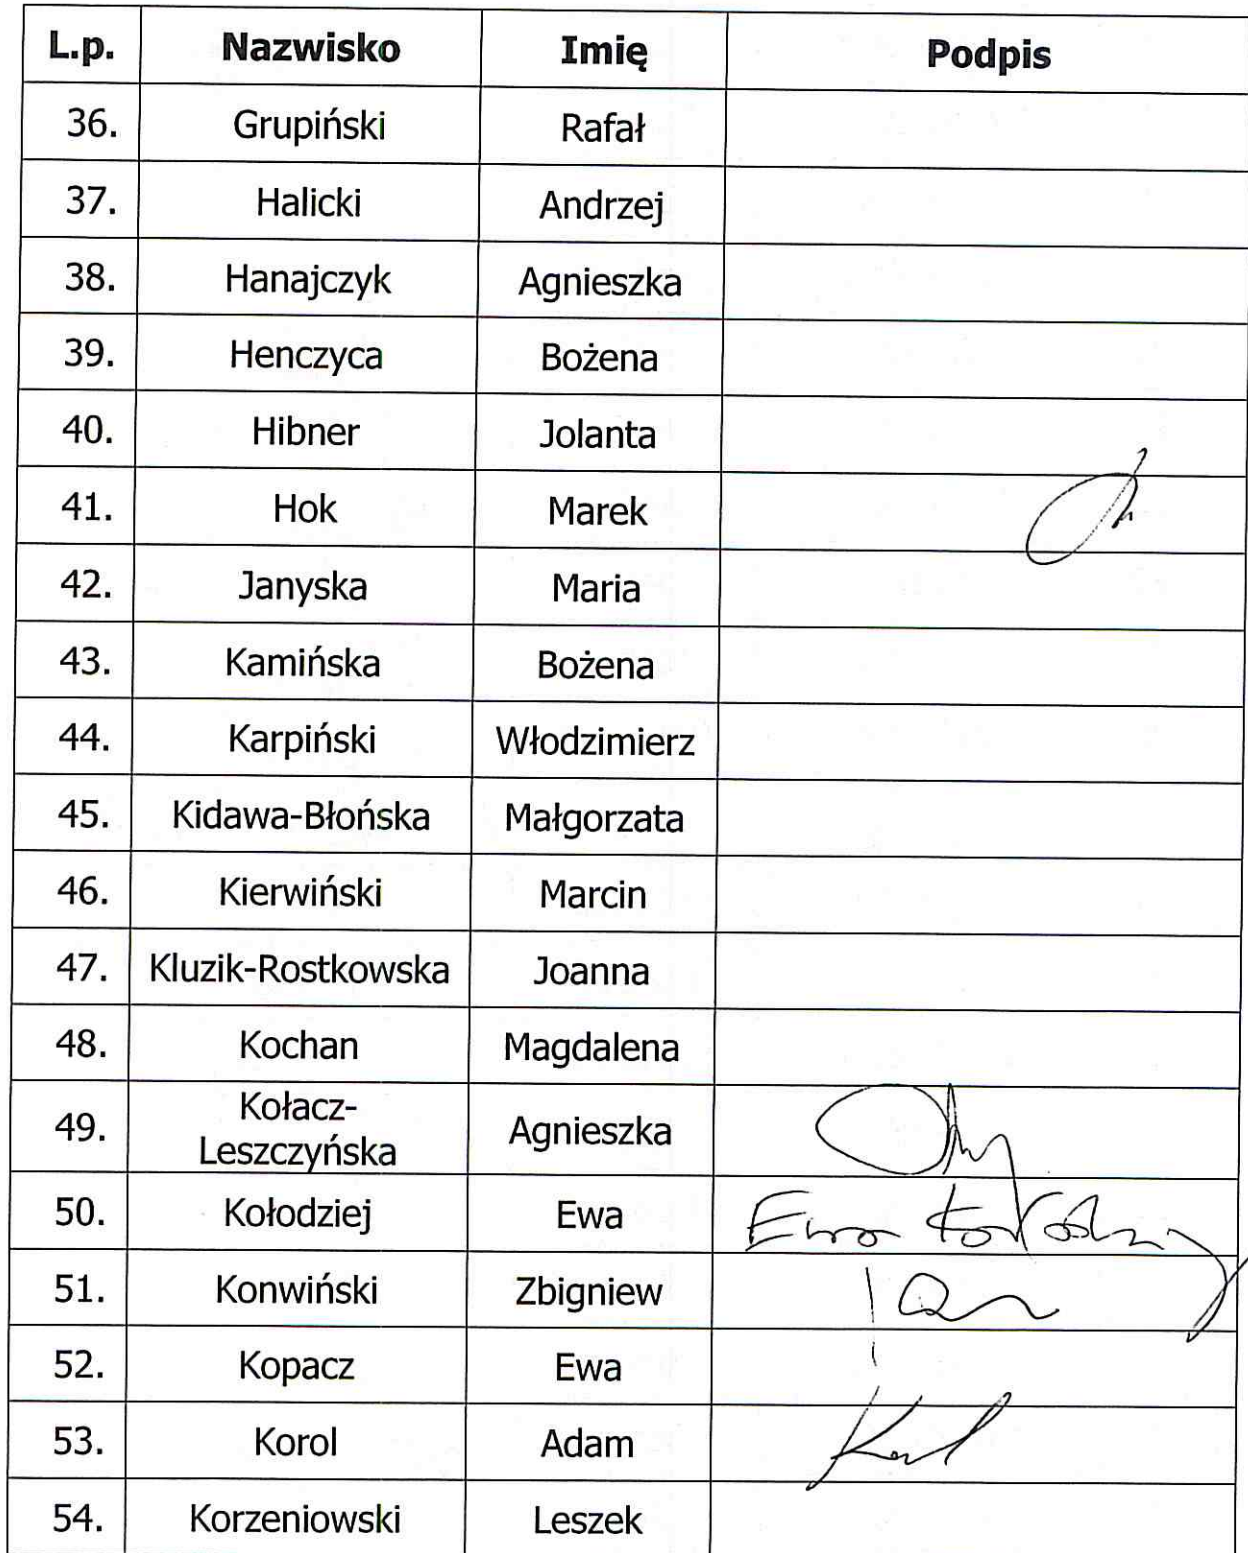 L.p. Nazwisko Imię Podpis
36. Grupiński Rafał
37. Halicki Andrzej
38. Hanajczyk Agnieszka
39. Henczyca Bożena
40. Hibner Jolanta
41. Hok Marek
42. Janyska Maria
43. Kamińska Bożena
44. Karpiński Włodzimierz
45. Kidawa-Błońska Małgorzata
46. Kierwiński Marcin
47. Kluzik-Rostkowska Joanna
48. Kochan Magdalena
49. Kołacz-
Leszczyńska Agnieszka
50. Kołodziej Ewa Ewa Kołodziej
51. Konwiński Zbigniew
52. Kopacz Ewa
53. Korol Adam
54. Korzeniowski Leszek